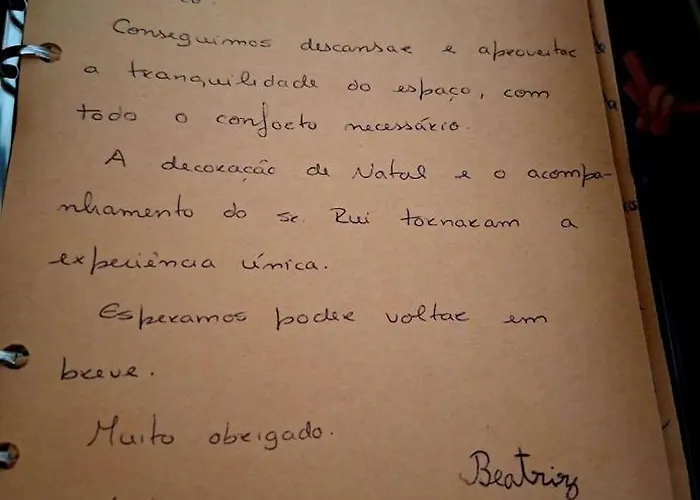 Conseguimos descansar e aproveitar
a tranquilidade do espaço, com
todo o conforto necessário.
A decoração de Natal e o acompa-
nhamento do sr. Rui tornaram a
experiência única.
Esperamos poder voltar em
breve.
Muito obrigado.
Beatriz